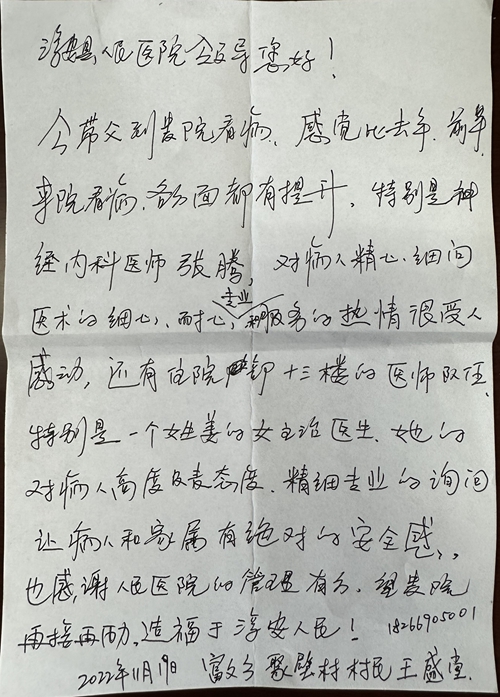 淳安县人民医院领导您好！
今带父到贵院看病，感觉比去年、前年
来院看病，各方面都有提升，特别是神
经内科医师张腾，对病人精心、细问
专业
医术的细心、耐心，和服务的热情很受人
感动，还有住院部十三楼的医师队伍，
特别是一个姓姜的女主治医生，她的
对病人高度负责态度，精细专业的询问
让病人和家属有绝对的安全感，
也感谢人民医院的管理有方，望贵院
再接再励，造福于淳安人民！ 18266905001
2022年11月19日 富文乡 聚壁村 村民 王盛堂